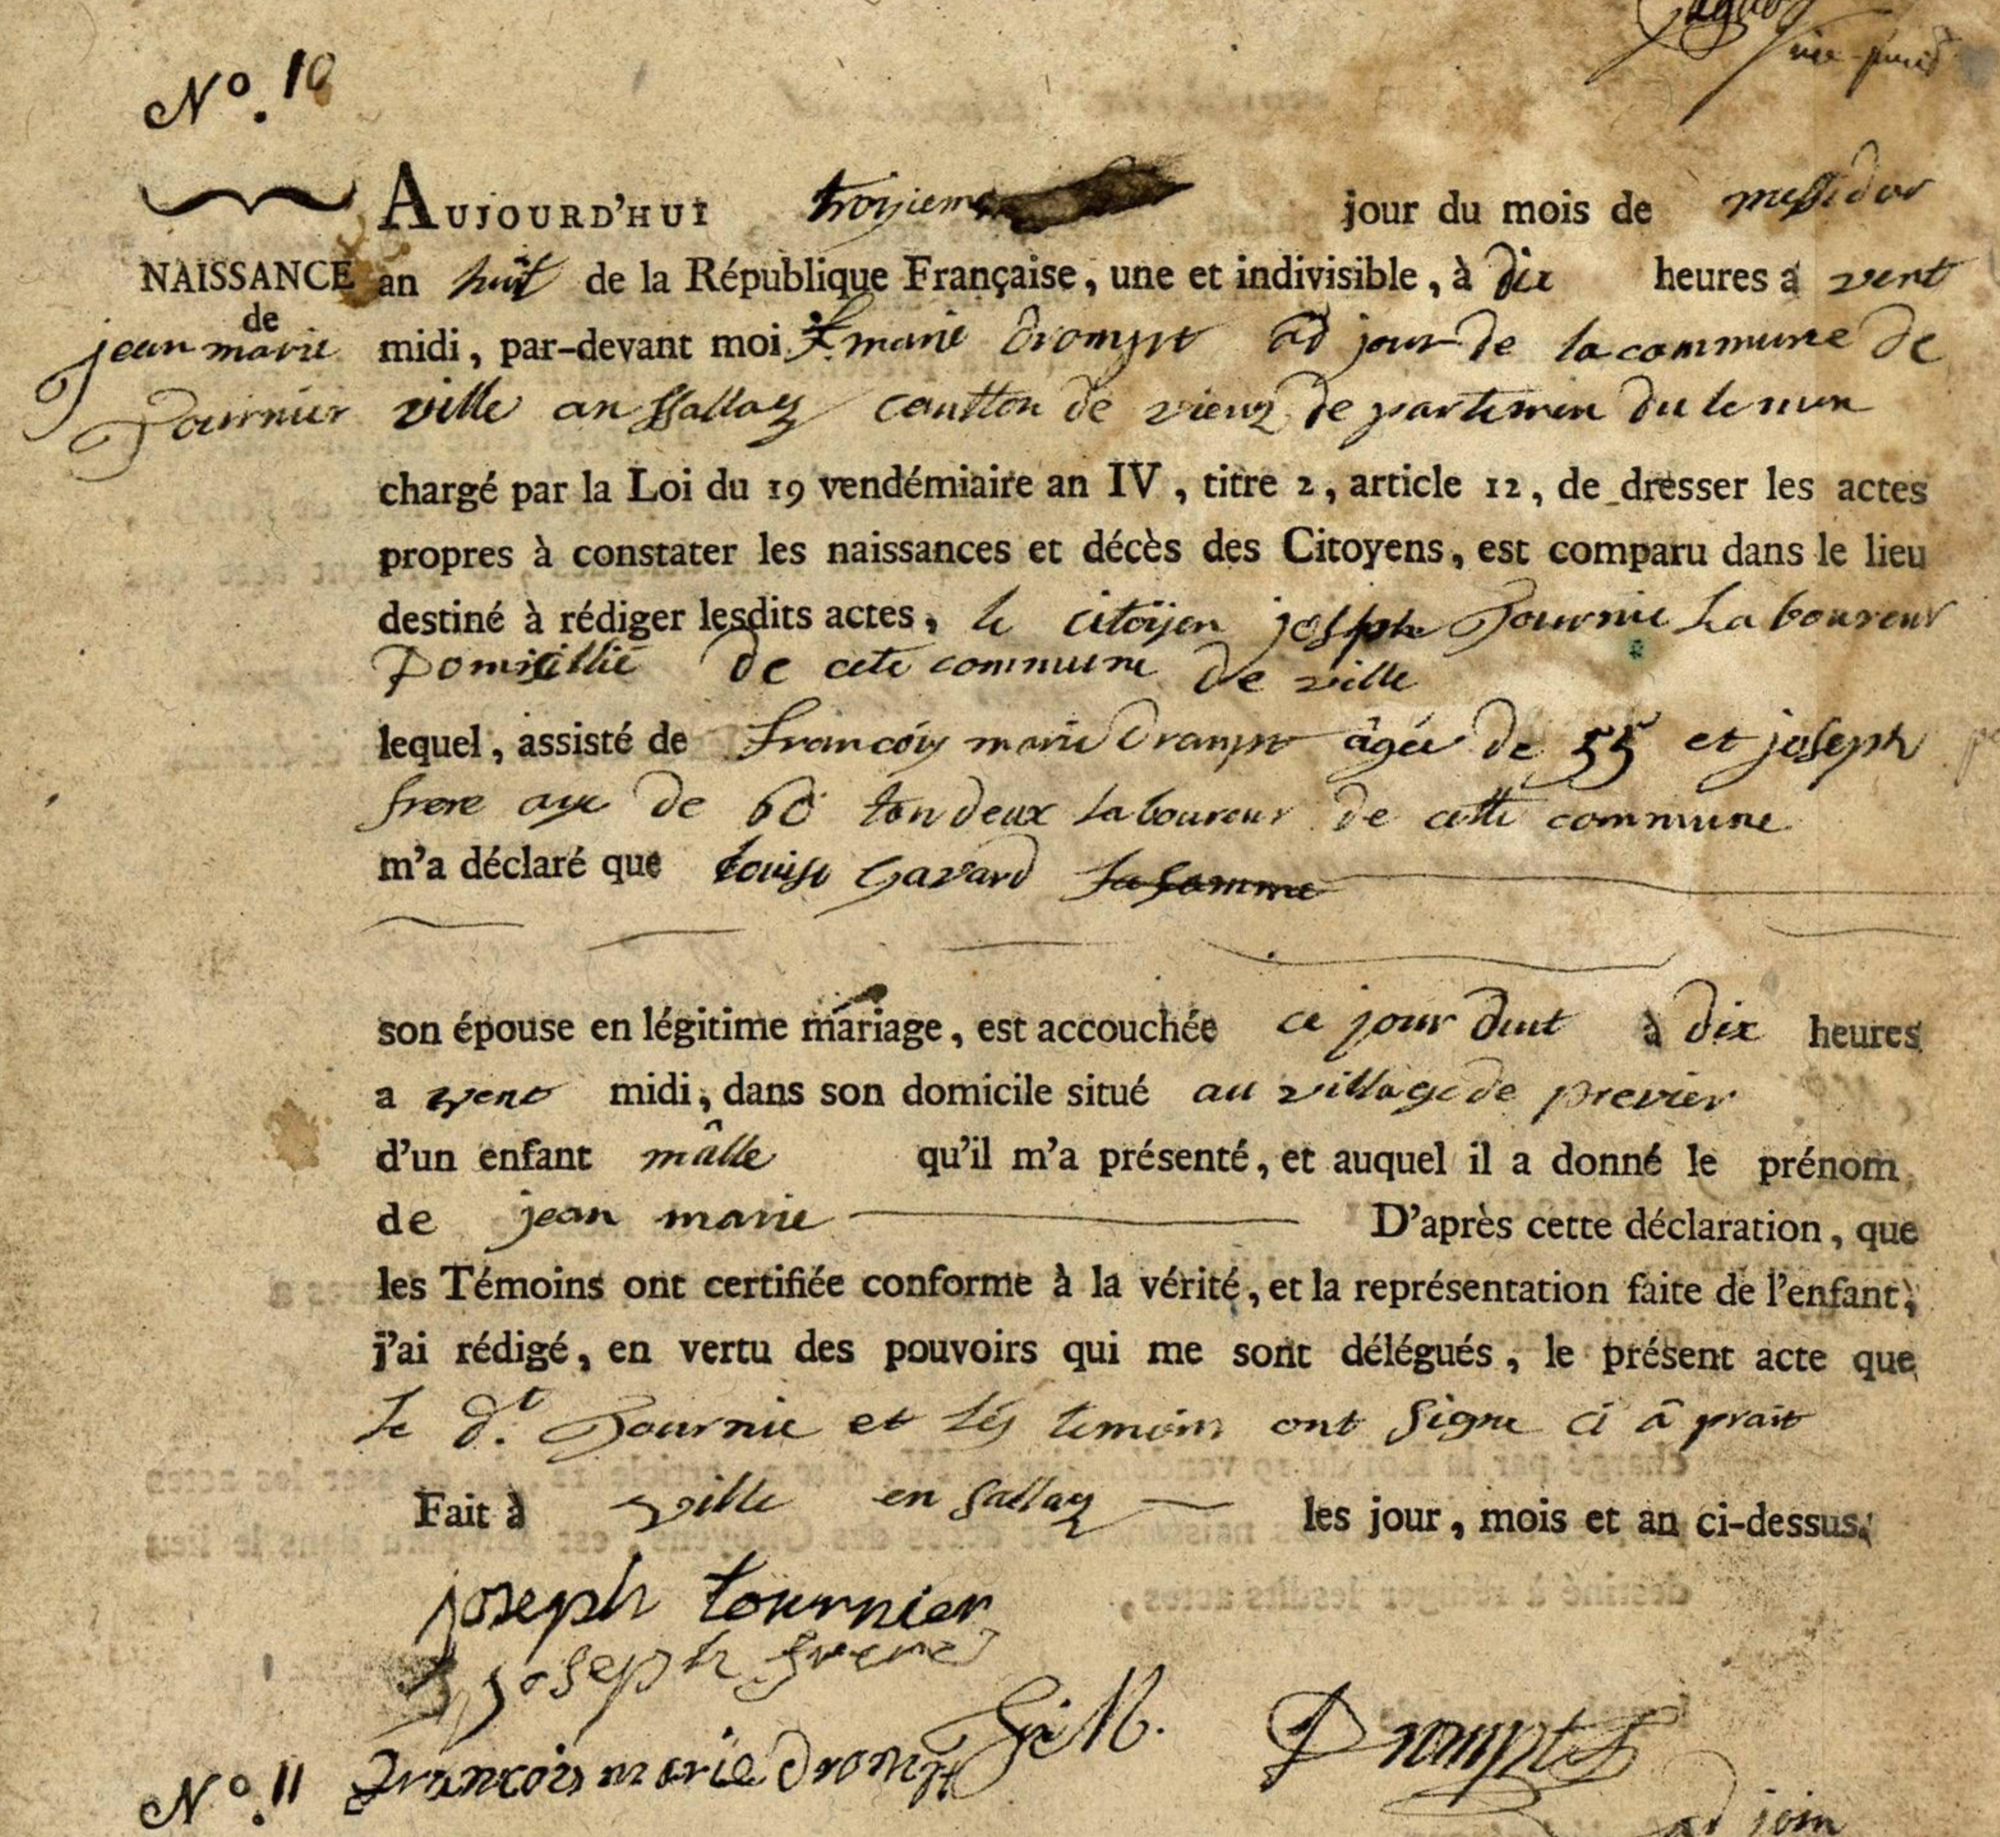 N.º 10
AUJOURD'HUI troisieme jour du mois de messidor
NAISSANCE
de
jean marie
Tournier
an huit de la République Française, une et indivisible, à dix heures a vent
midi, par-devant moi f marie Drompt ad jour de la commune de
ville an Sallaz cantton de vieuz departemen du leman
chargé par la Loi du 19 vendémiaire an IV, titre 2, article 12, de dresser les actes
propres à constater les naissances et décès des Citoyens, est comparu dans le lieu
destiné à rédiger lesdits actes, le citoijen joseph Tournie Laboureur
Domicillié de cete commune de ville
lequel, assisté de francois marie Drompt âgée de 55 et joseph
frere aye de 60 tou deux Laboureur de cette commune
m'a déclaré que Louise Gavard la famme
son épouse en légitime mariage, est accouchée ce jour duit à dix heures
a vent midi, dans son domicile situé au village de previer
d'un enfant mâlle qu'il m'a présenté, et auquel il a donné le prénom
de jean marie D'après cette déclaration, que
les Témoins ont certifiée conforme à la vérité, et la représentation faite de l'enfant,
j'ai rédigé, en vertu des pouvoirs qui me sont délégués, le présent acte que
le d.t Tournie et lés temoin ont signe ci â prait
Fait à ville en Sallaz les jour, mois et an ci-dessus.
joseph tournier
joseph frere
francois marie Drompt
Drompt
ad join
N.º 11